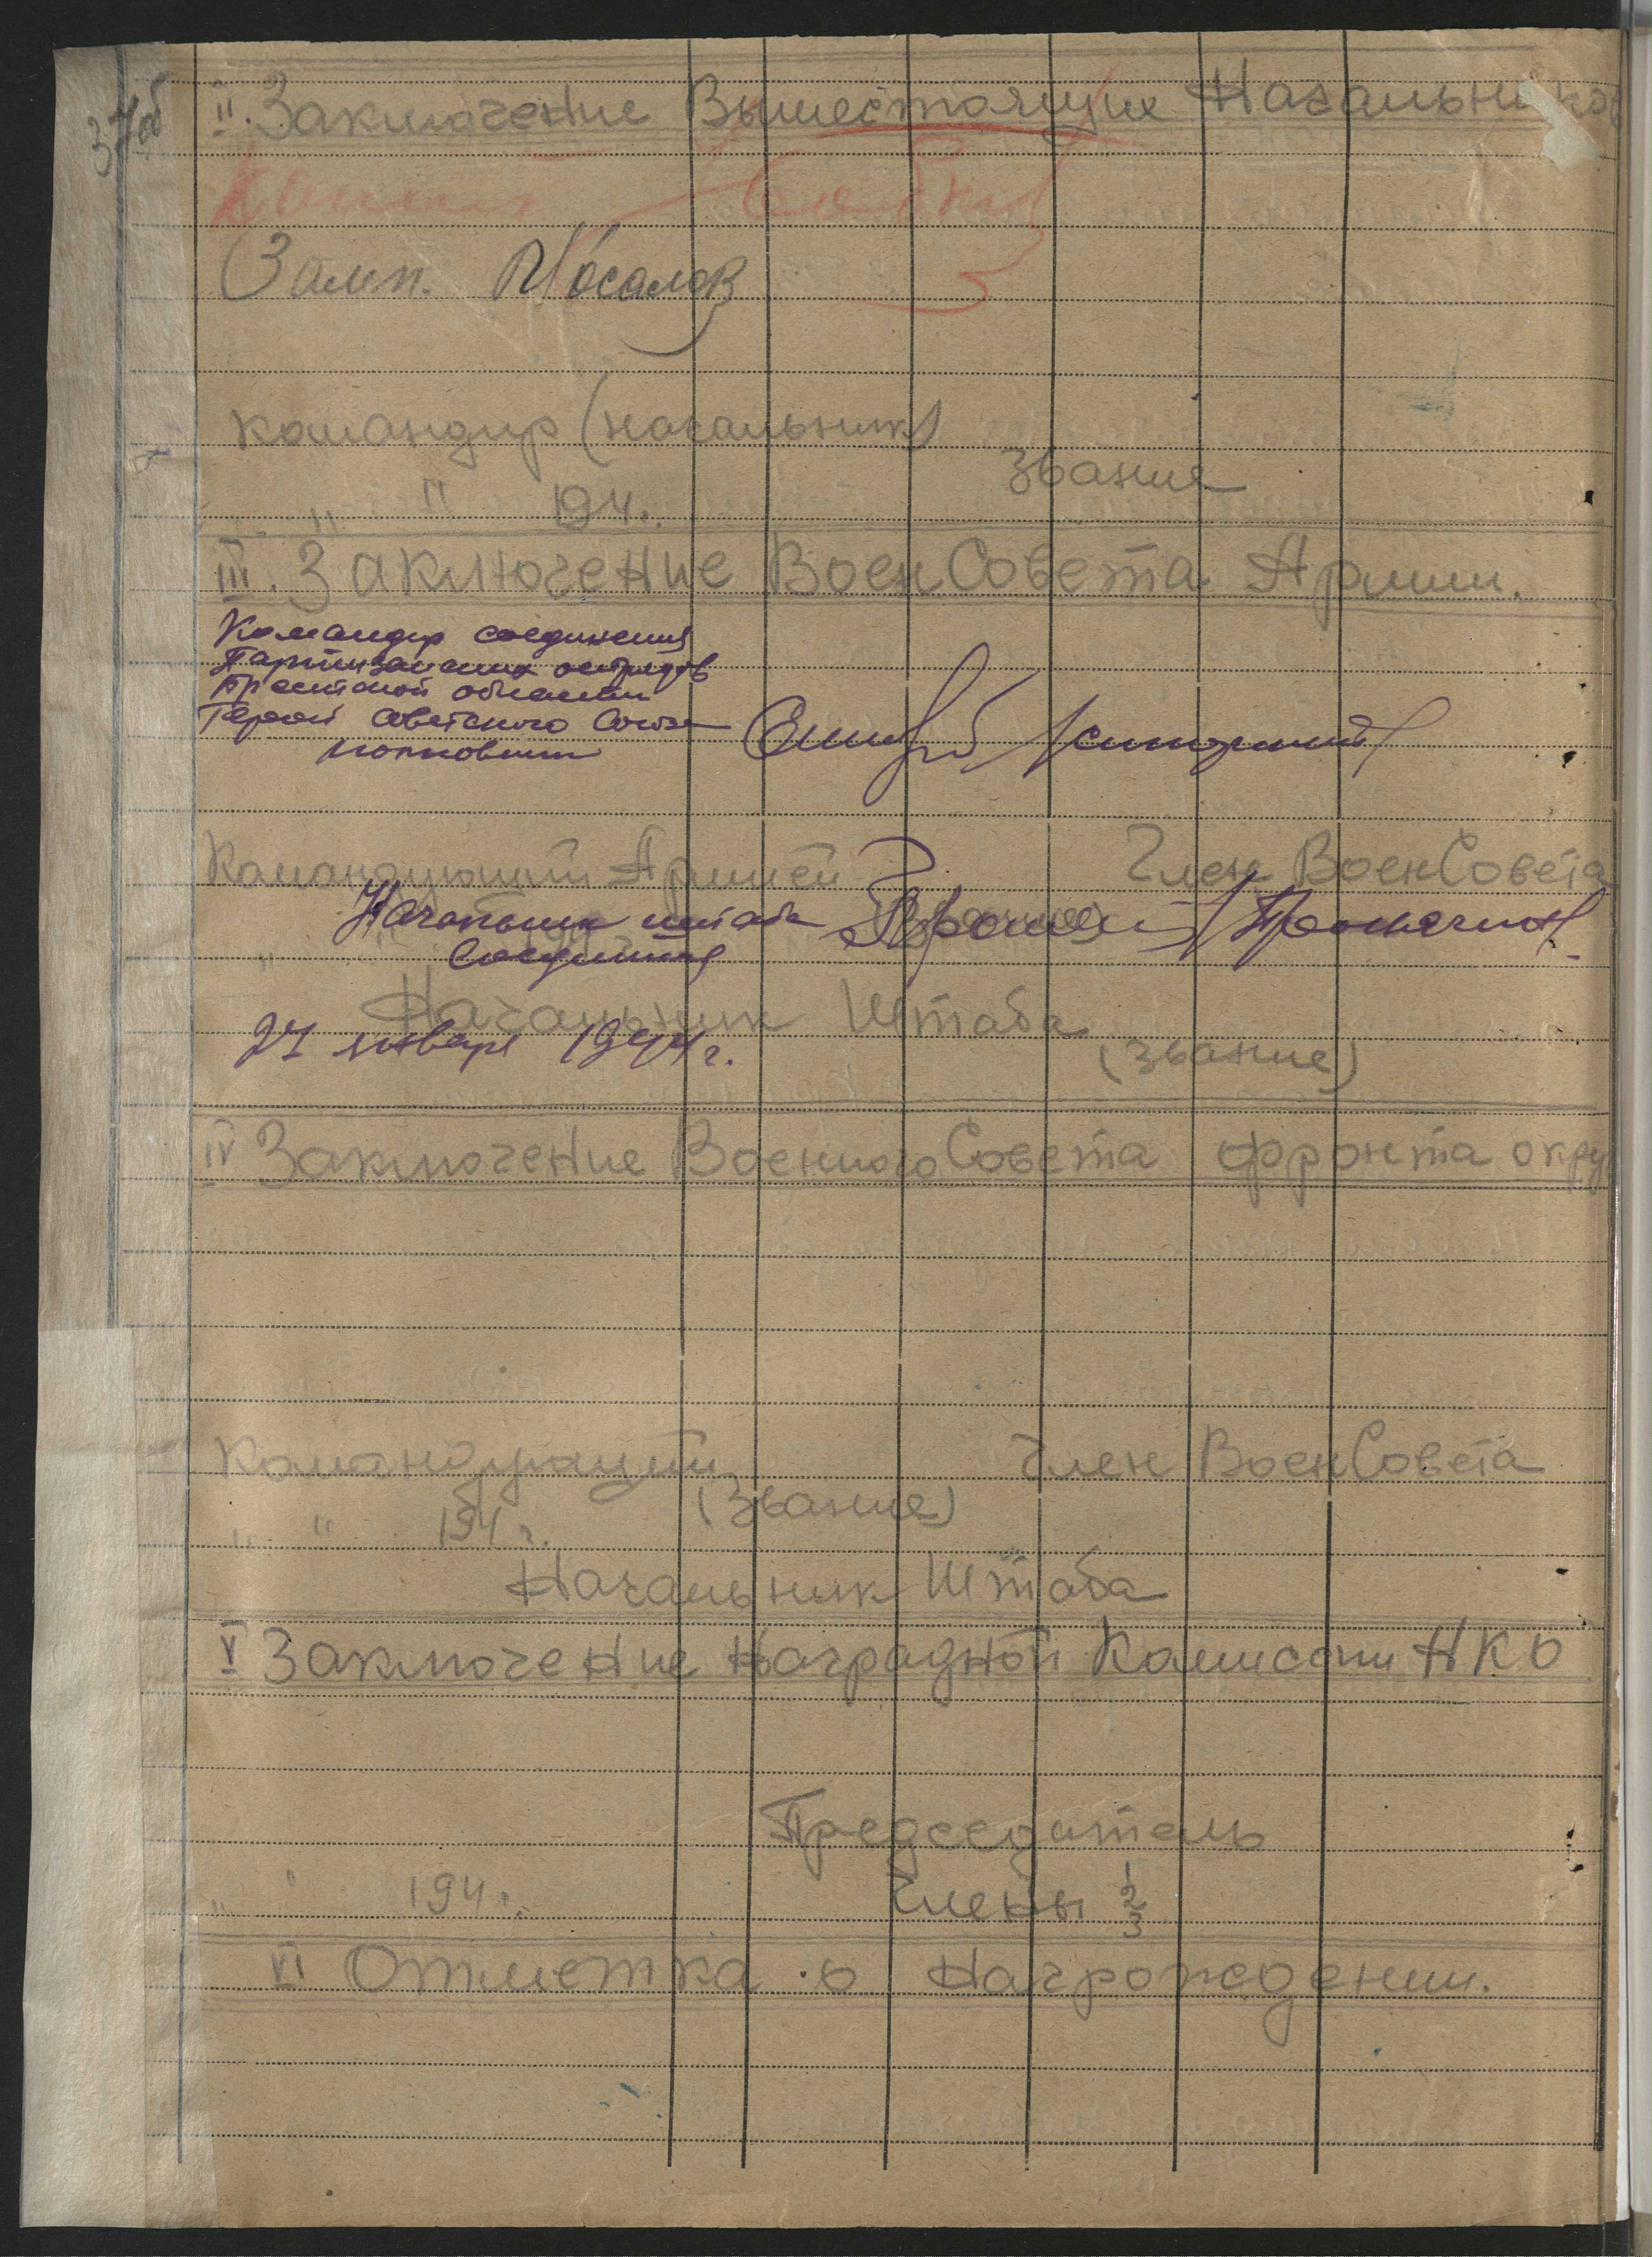 37об
II. Заключение Вышестоящих Начальников
Зам п. Мосалов
Командир (начальник)
Звание
" " 194 .
III. Заключение ВоенСовета Армии.
Командир соединения
Партизанских отрядов
Брестской области
Герой Советского Союза
полковник
Командующий Армией Член ВоенСовета
Начальник штаба /Пронягин/
Соединения
Начальник Штаба
27 января 1944 г.
(звание)
IV Заключение Военного Совета фронта окру
Командующий Член ВоенСовета
(Звание)
" " 194 г.
Начальник Штаба
V Заключение Наградной Комиссии НКО
Председатель
" " 194 г. Члены 1
2
3
VI Отметка о Награждении.